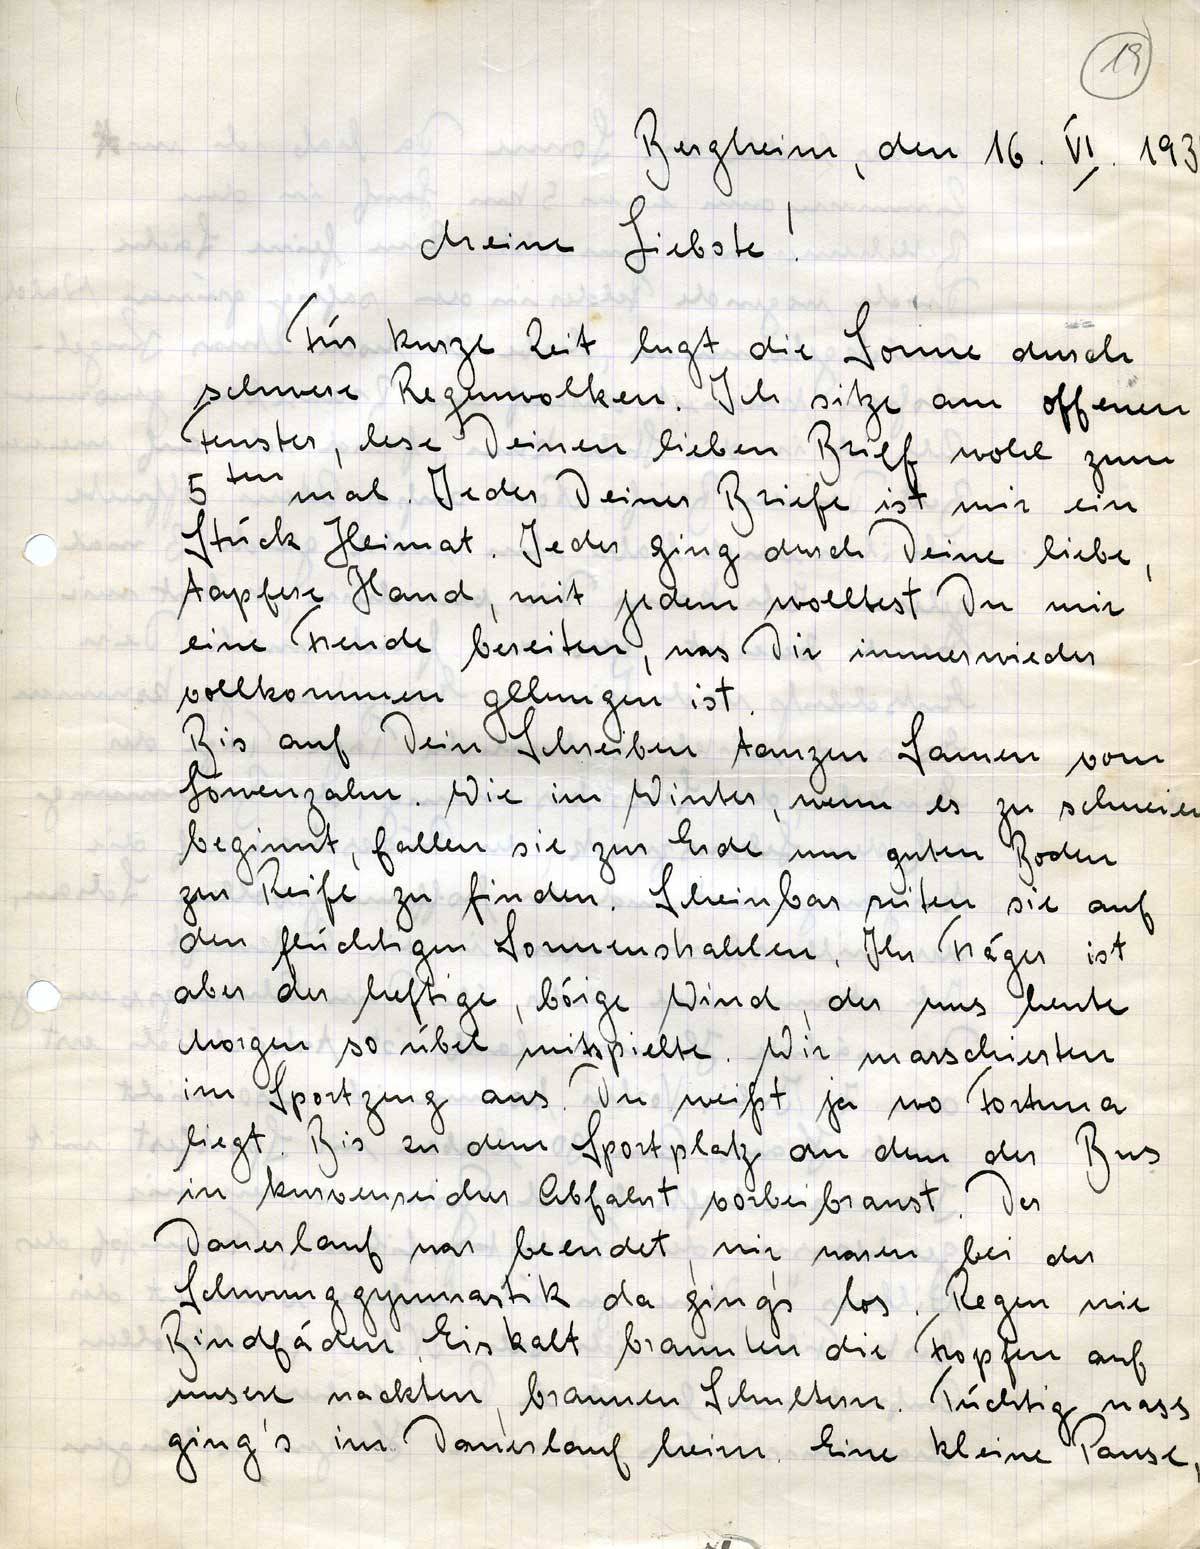 19
Bergheim, den 16. VI. 193
Meine Liebste!
Für kurze Zeit lugt die Sonne durch
schwere Regenwolken. Ich sitze am offenen
Fenster, lese Deinen lieben Brief wohl zum
5ten mal. Jeder Deiner Briefe ist mir ein
Stück Heimat. Jeder ging durch Deine liebe,
tapfere Hand, mit jedem wolltest Du mir
eine Freude bereiten, was Dir immerwieder
vollkommen gelungen ist.
Bis auf Dein Schreiben tanzen Samen vom
Löwenzahn. Wie im Winter, wenn es zu schneien
beginnt, fallen sie zur Erde um guten Boden
zur Reife zu finden. Scheinbar reiten sie auf
den flüchtigen Sonnenstrahlen. Ihr Träger ist
aber der heftige, böige Wind, der uns heute
Morgen so übel mitspielte. Wir marschierten
im Sportzeug aus. Du weißt ja wo Fortuna
liegt. Bis zu dem Sportplatz an dem der Bus
in kurvenreicher Abfahrt vorbeibraust. Der
Dauerlauf war beendet, wir waren bei der
Schwunggymnastik da ging's los. Regen wie
Bindfäden. Eiskalt brannten die Tropfen auf
unsere nackten, braunen Schultern. Tüchtig nass
ging's im Dauerlauf heim. Eine kleine Pause,